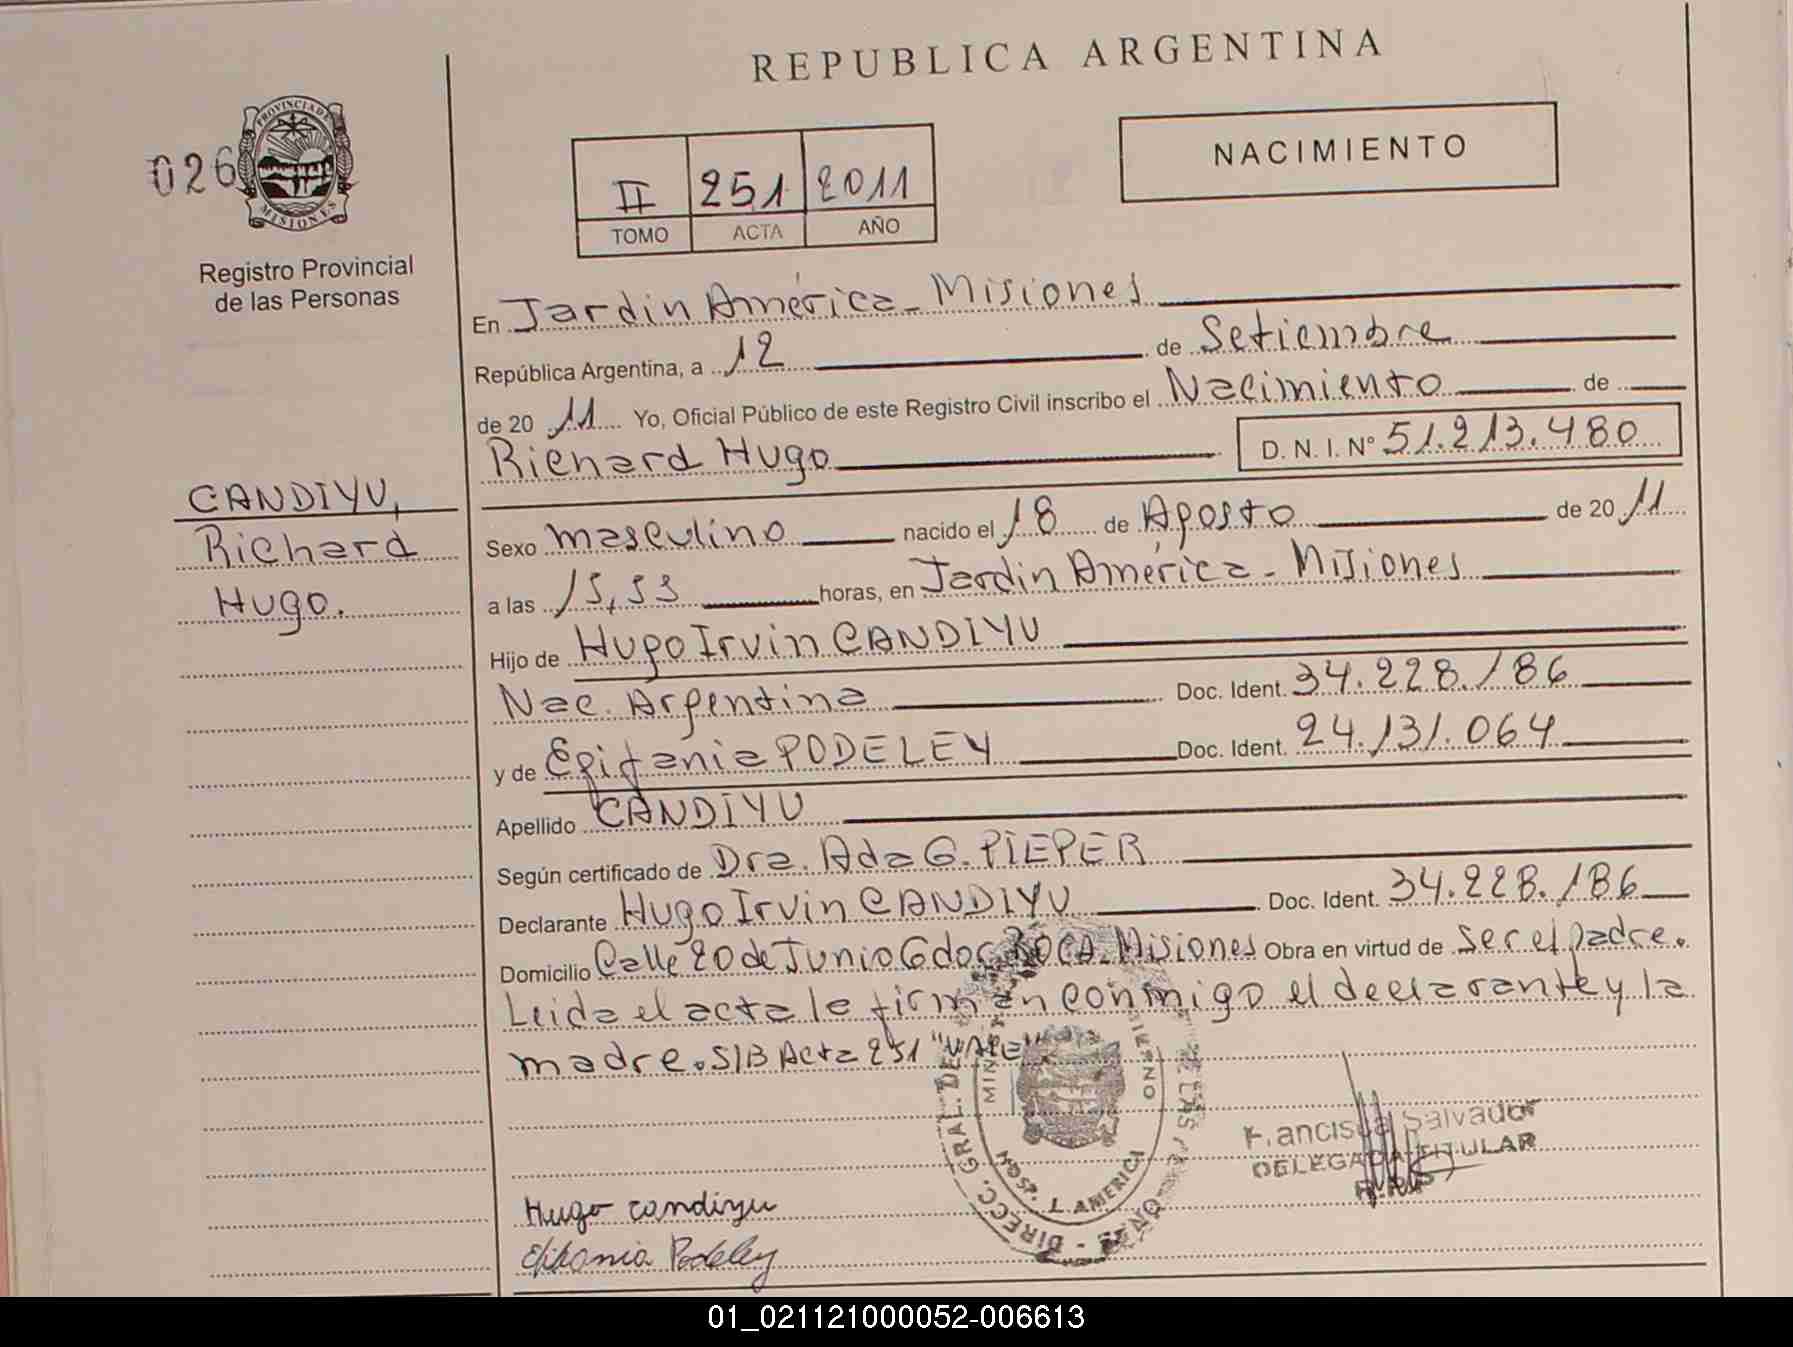 REPUBLICA ARGENTINA
026
PROVINCIA DE
MISIONES
Registro Provincial
de las Personas
II 251 2011
TOMO ACTA AÑO
NACIMIENTO
En Jardin América - Misiones
República Argentina, a 12 de Setiembre
de 20 11 Yo, Oficial Público de este Registro Civil inscribo el Nacimiento de
Richard Hugo D. N. I. N° 51.213.480
CANDIYU,
Richard
Hugo.
Sexo masculino nacido el 18 de Agosto de 20 11
a las 15,53 horas, en Jardin América - Misiones
Hijo de Hugo Irvin CANDIYU
Nac. Argentina Doc. Ident. 34.228.186
y de Epifania PODELEY Doc. Ident. 24.131.064
Apellido CANDIYU
Según certificado de Dra. Ada G. PIEPER
Declarante Hugo Irvin CANDIYU Doc. Ident. 34.228.186
Domicilio Calle 20 de Junio Gdor ROCA - Misiones Obra en virtud de ser el padre.
Leida el acta le firman conmigo el declarante y la
madre. S/B Acta 251 "VALE"
DIRECC. GRAL. DE
HOSP. J. AMERICA
Francisca Salvador
DELEGADA TITULAR
Hugo candiyu
Epifania Podeley
01_021121000052-006613